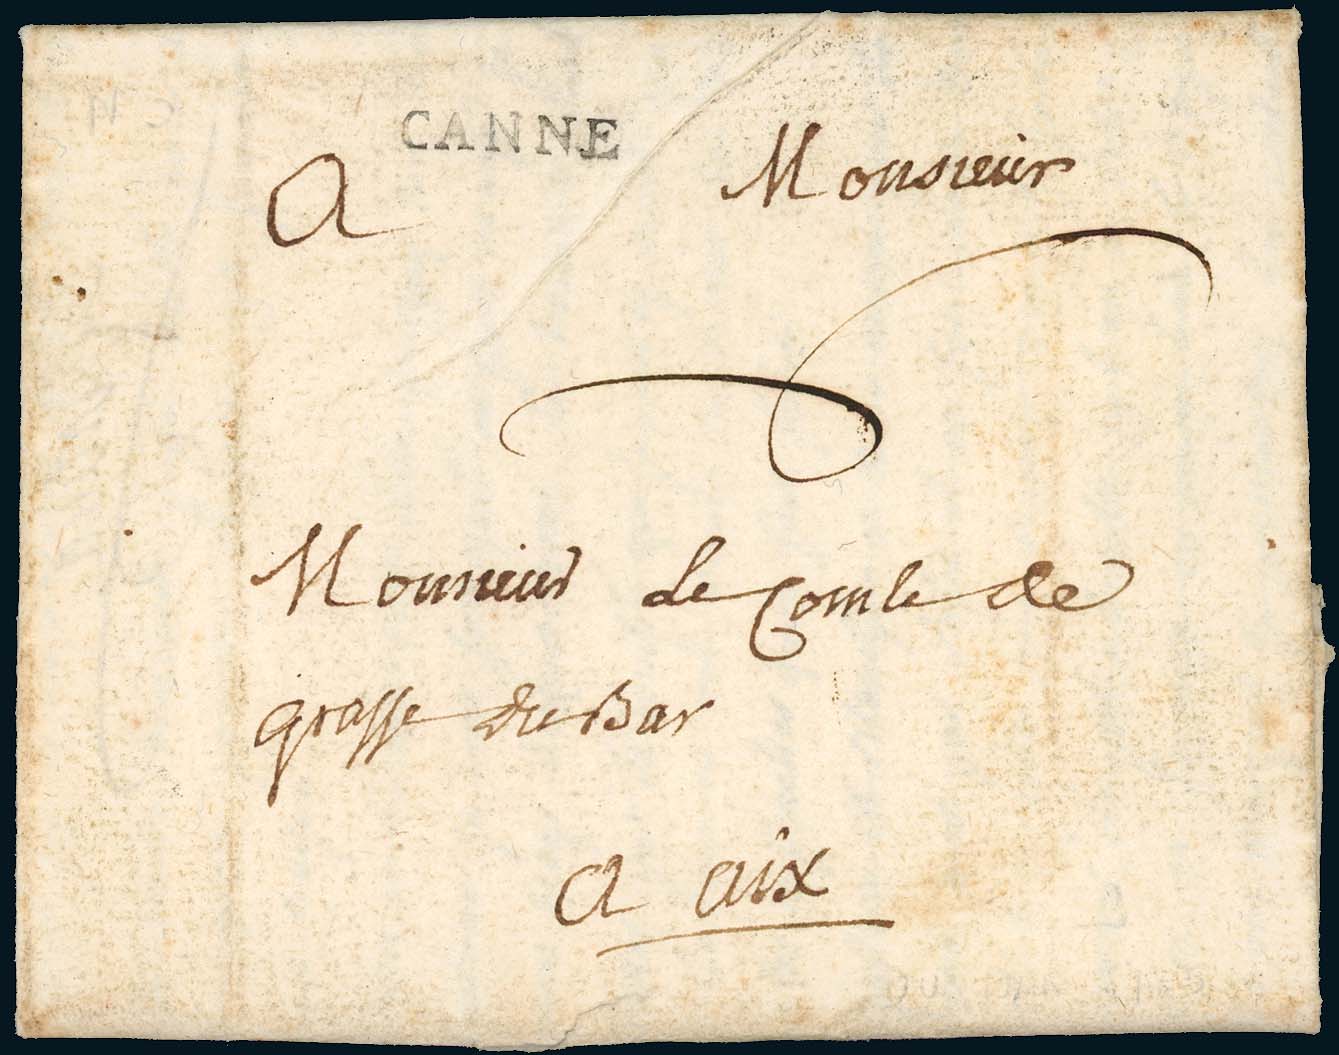 CANNE
A Monsieur
Monsieur le Comte de
grasse du Bar
a aix